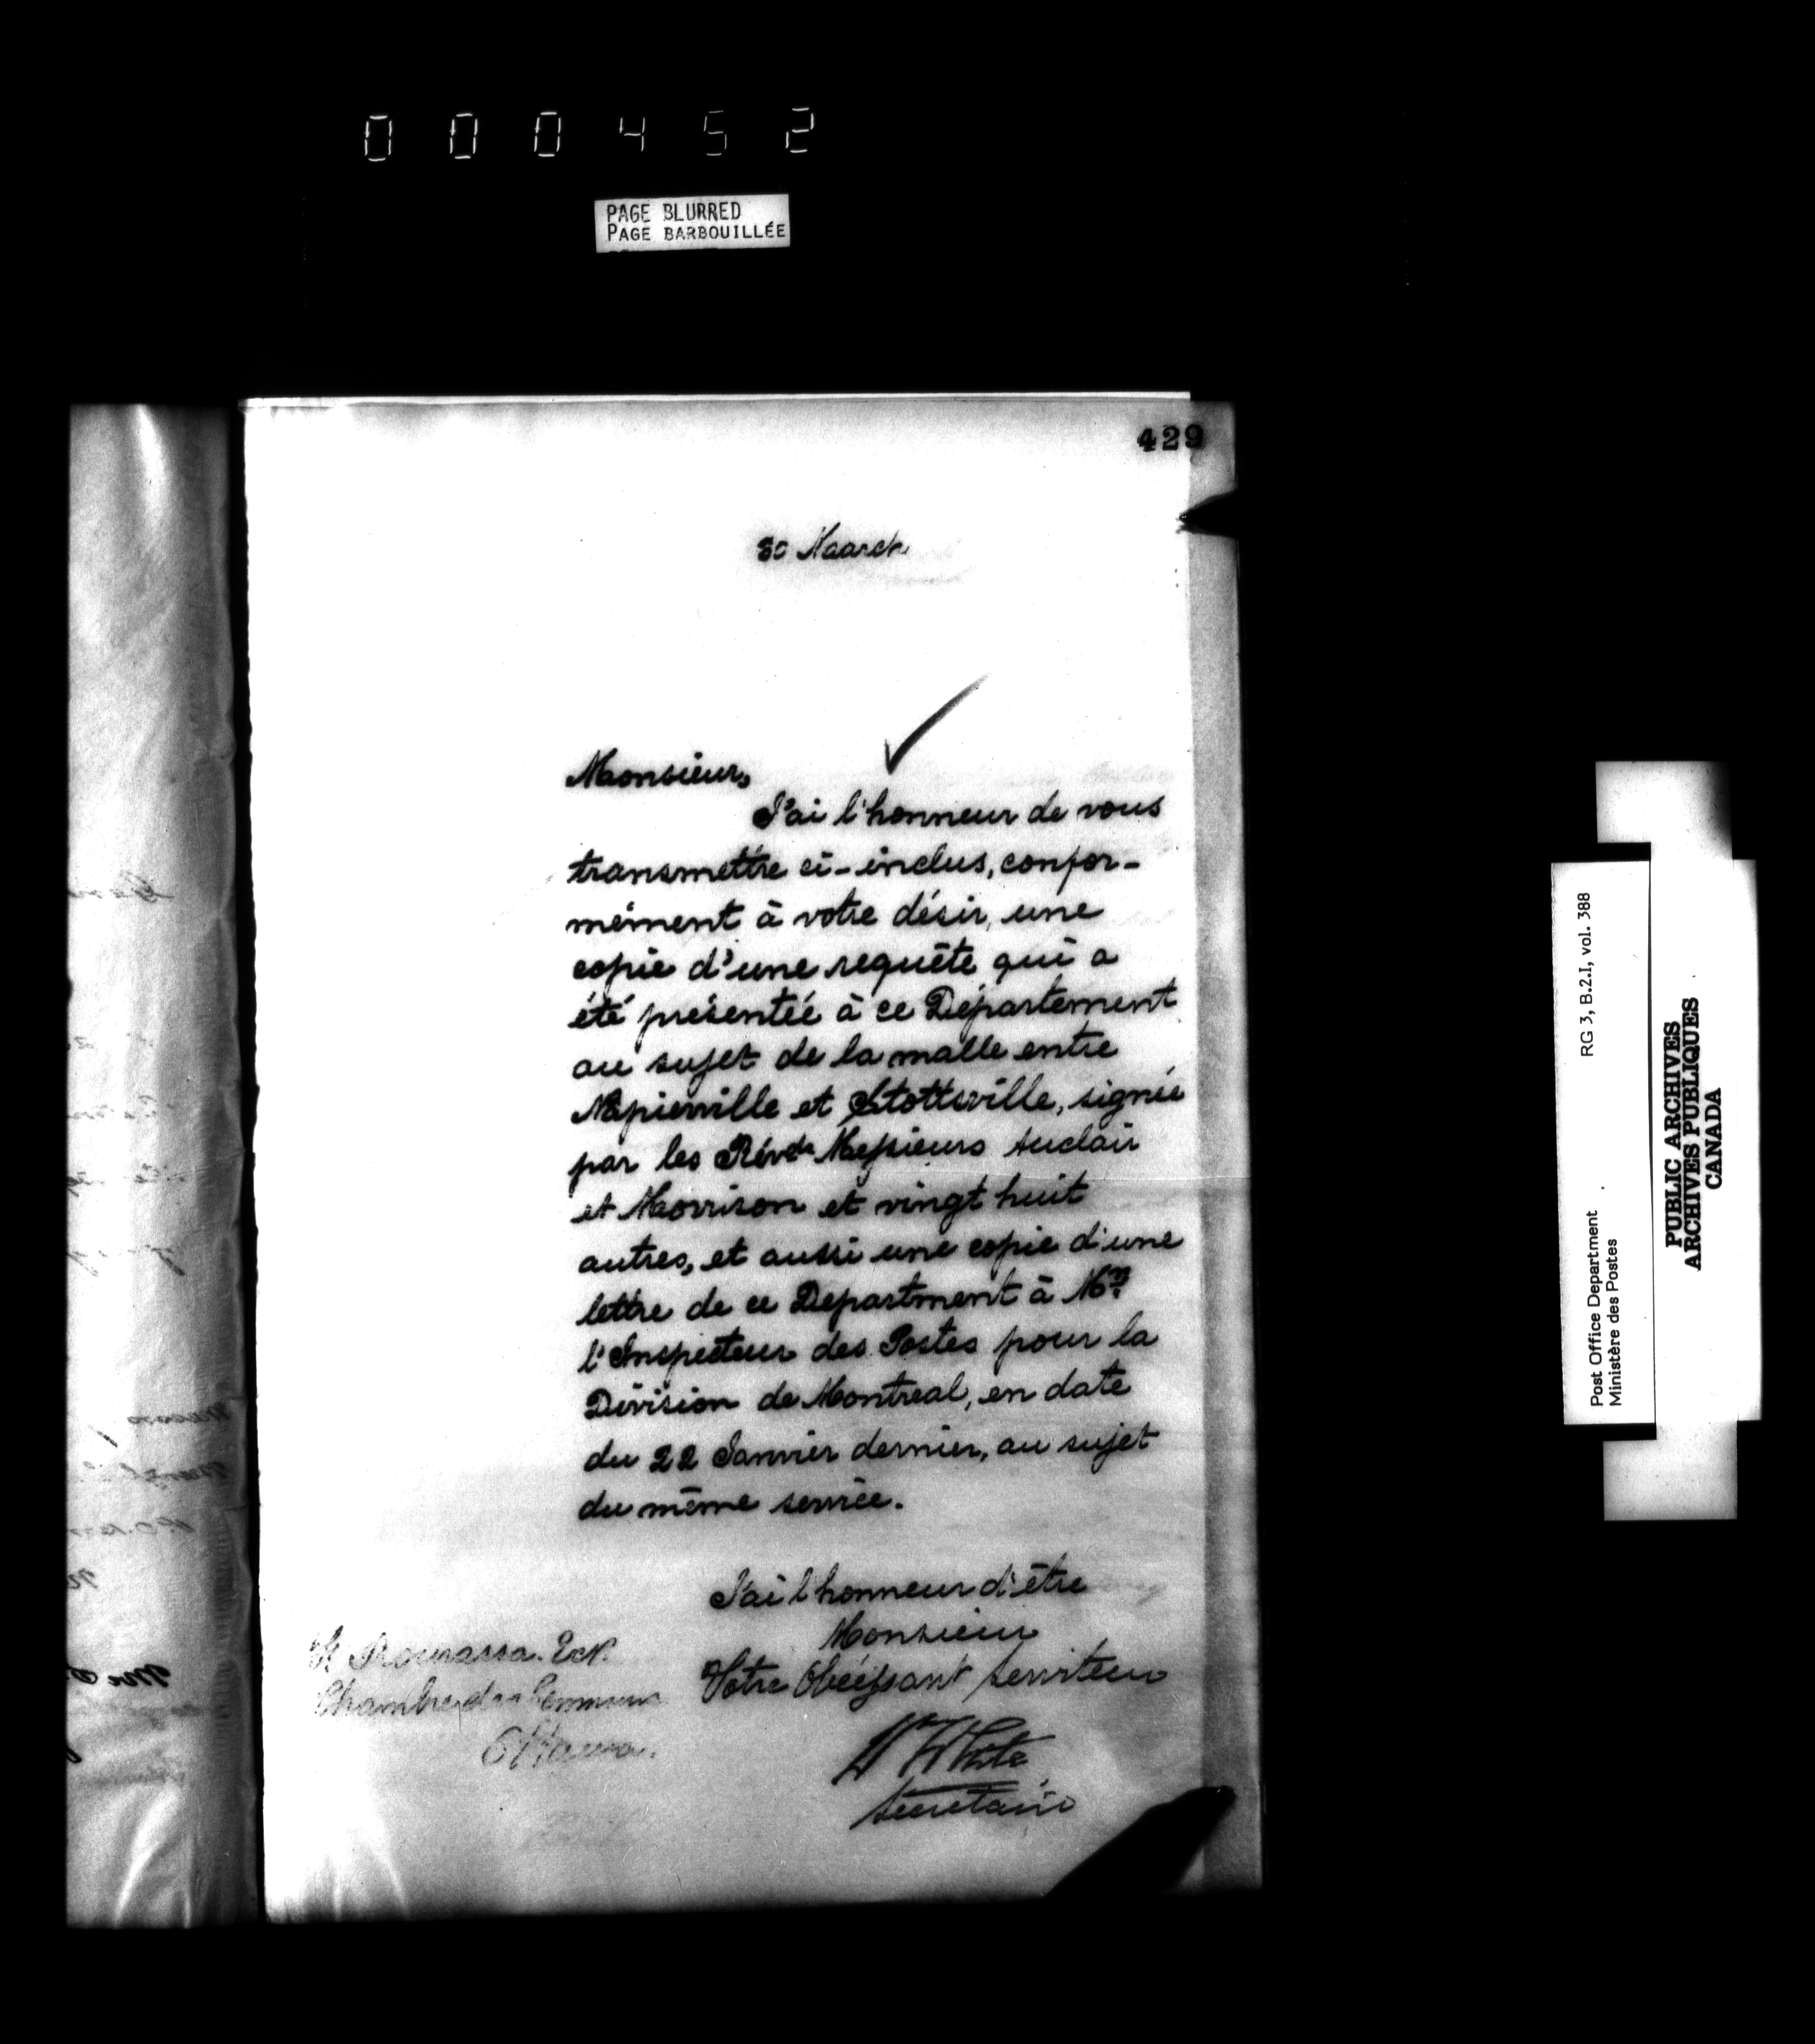 000452
PAGE BLURRED
PAGE BARBOUILLÉE
429
30 March
Monsieur,
J'ai l'honneur de vous
transmettre ci-inclus, confor-
mément à votre désir, une
copie d'une requête qui a
été présentée à ce Département
au sujet de la malle entre
Napierville et Stottsville, signée
par les Révds Messieurs Auclair
et Morrison et vingt huit
autres, et aussi une copie d'une
lettre de ce Department à Mr.
l'Inspecteur des Postes pour la
Division de Montreal, en date
du 22 Janvier dernier, au sujet
du même service.
J'ai l'honneur d'être
Monsieur
Votre Obéissant Serviteur
Wm White
Secretaire
Bourassa. Ecr.
Chambre des Communes
Ottawa.
Post Office Department RG 3, B.2.I, vol. 388
Ministère des Postes
PUBLIC ARCHIVES
ARCHIVES PUBLIQUES
CANADA